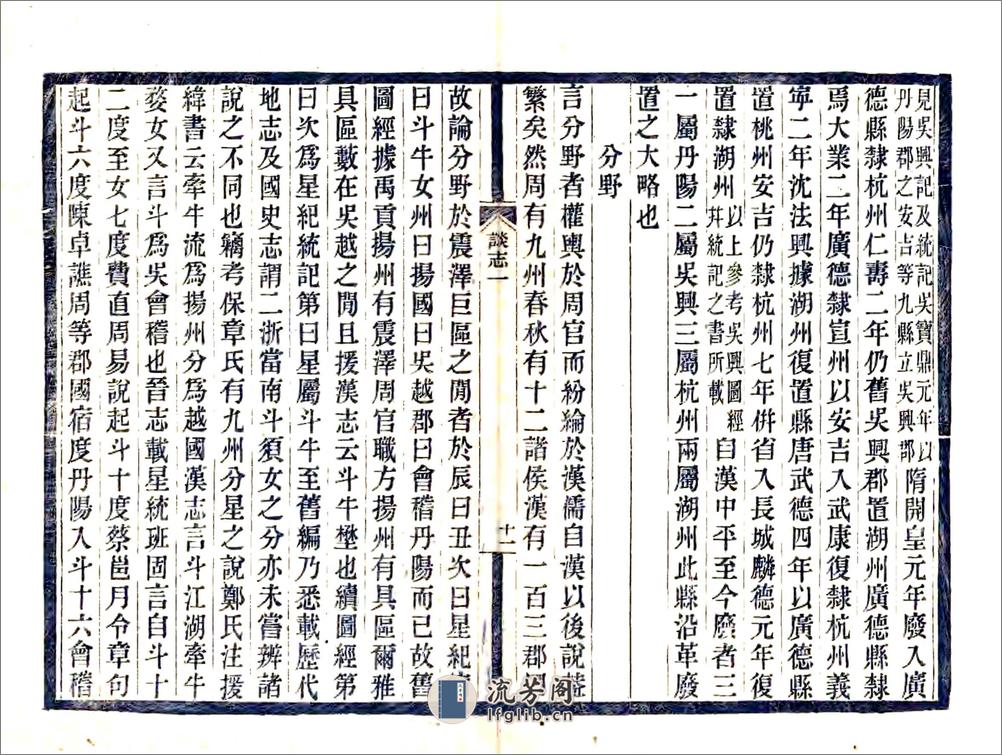 見吳興記及統記吳寶鼎元年以
丹陽郡之安吉等九縣立吳興郡
隋開皇元年廢入廣
德縣隸杭州仁壽二年仍舊吳興郡置湖州廣德縣隸
焉大業二年廣德隸宣州以安吉入武康復隸杭州義
寧二年沈法興據湖州復置縣唐武德四年以廣德縣
置桃州安吉仍隸杭州七年併省入長城麟德元年復
置隸湖州
以上參考吳興圖經
幷統記之書所載
自漢中平至今廢者三
一屬丹陽二屬吳興三屬杭州兩屬湖州此縣沿革廢
置之大略也
分野
言分野者權輿於周官而紛綸於漢儒自漢以後說
繁矣然周有九州春秋有十二諸侯漢有一百三郡
談志一
十一
故論分野於震澤巨區之閒者於辰曰丑次曰星紀
曰斗牛女州曰揚國曰吳越郡曰會稽丹陽而已故舊
圖經據禹貢揚州有震澤周官職方揚州有具區爾雅
具區藪在吳越之閒且援漢志云斗牛㙸也續圖經第
曰次爲星紀統記第曰星屬斗牛至舊編乃悉載歷代
地志及國史志謂二浙當南斗須女之分亦未嘗辨諸
說之不同也竊考保章氏有九州分星之說鄭氏注援
緯書云牽牛流爲揚州分爲越國漢志言斗江湖牽牛
婺女又言斗爲吳會稽也晉志載星統班固言自斗十
二度至女七度費直周易說起斗十度蔡邕月令章句
起斗六度陳卓譙周等郡國宿度丹陽入斗十六會稽
流芳阁
lfglib.cn